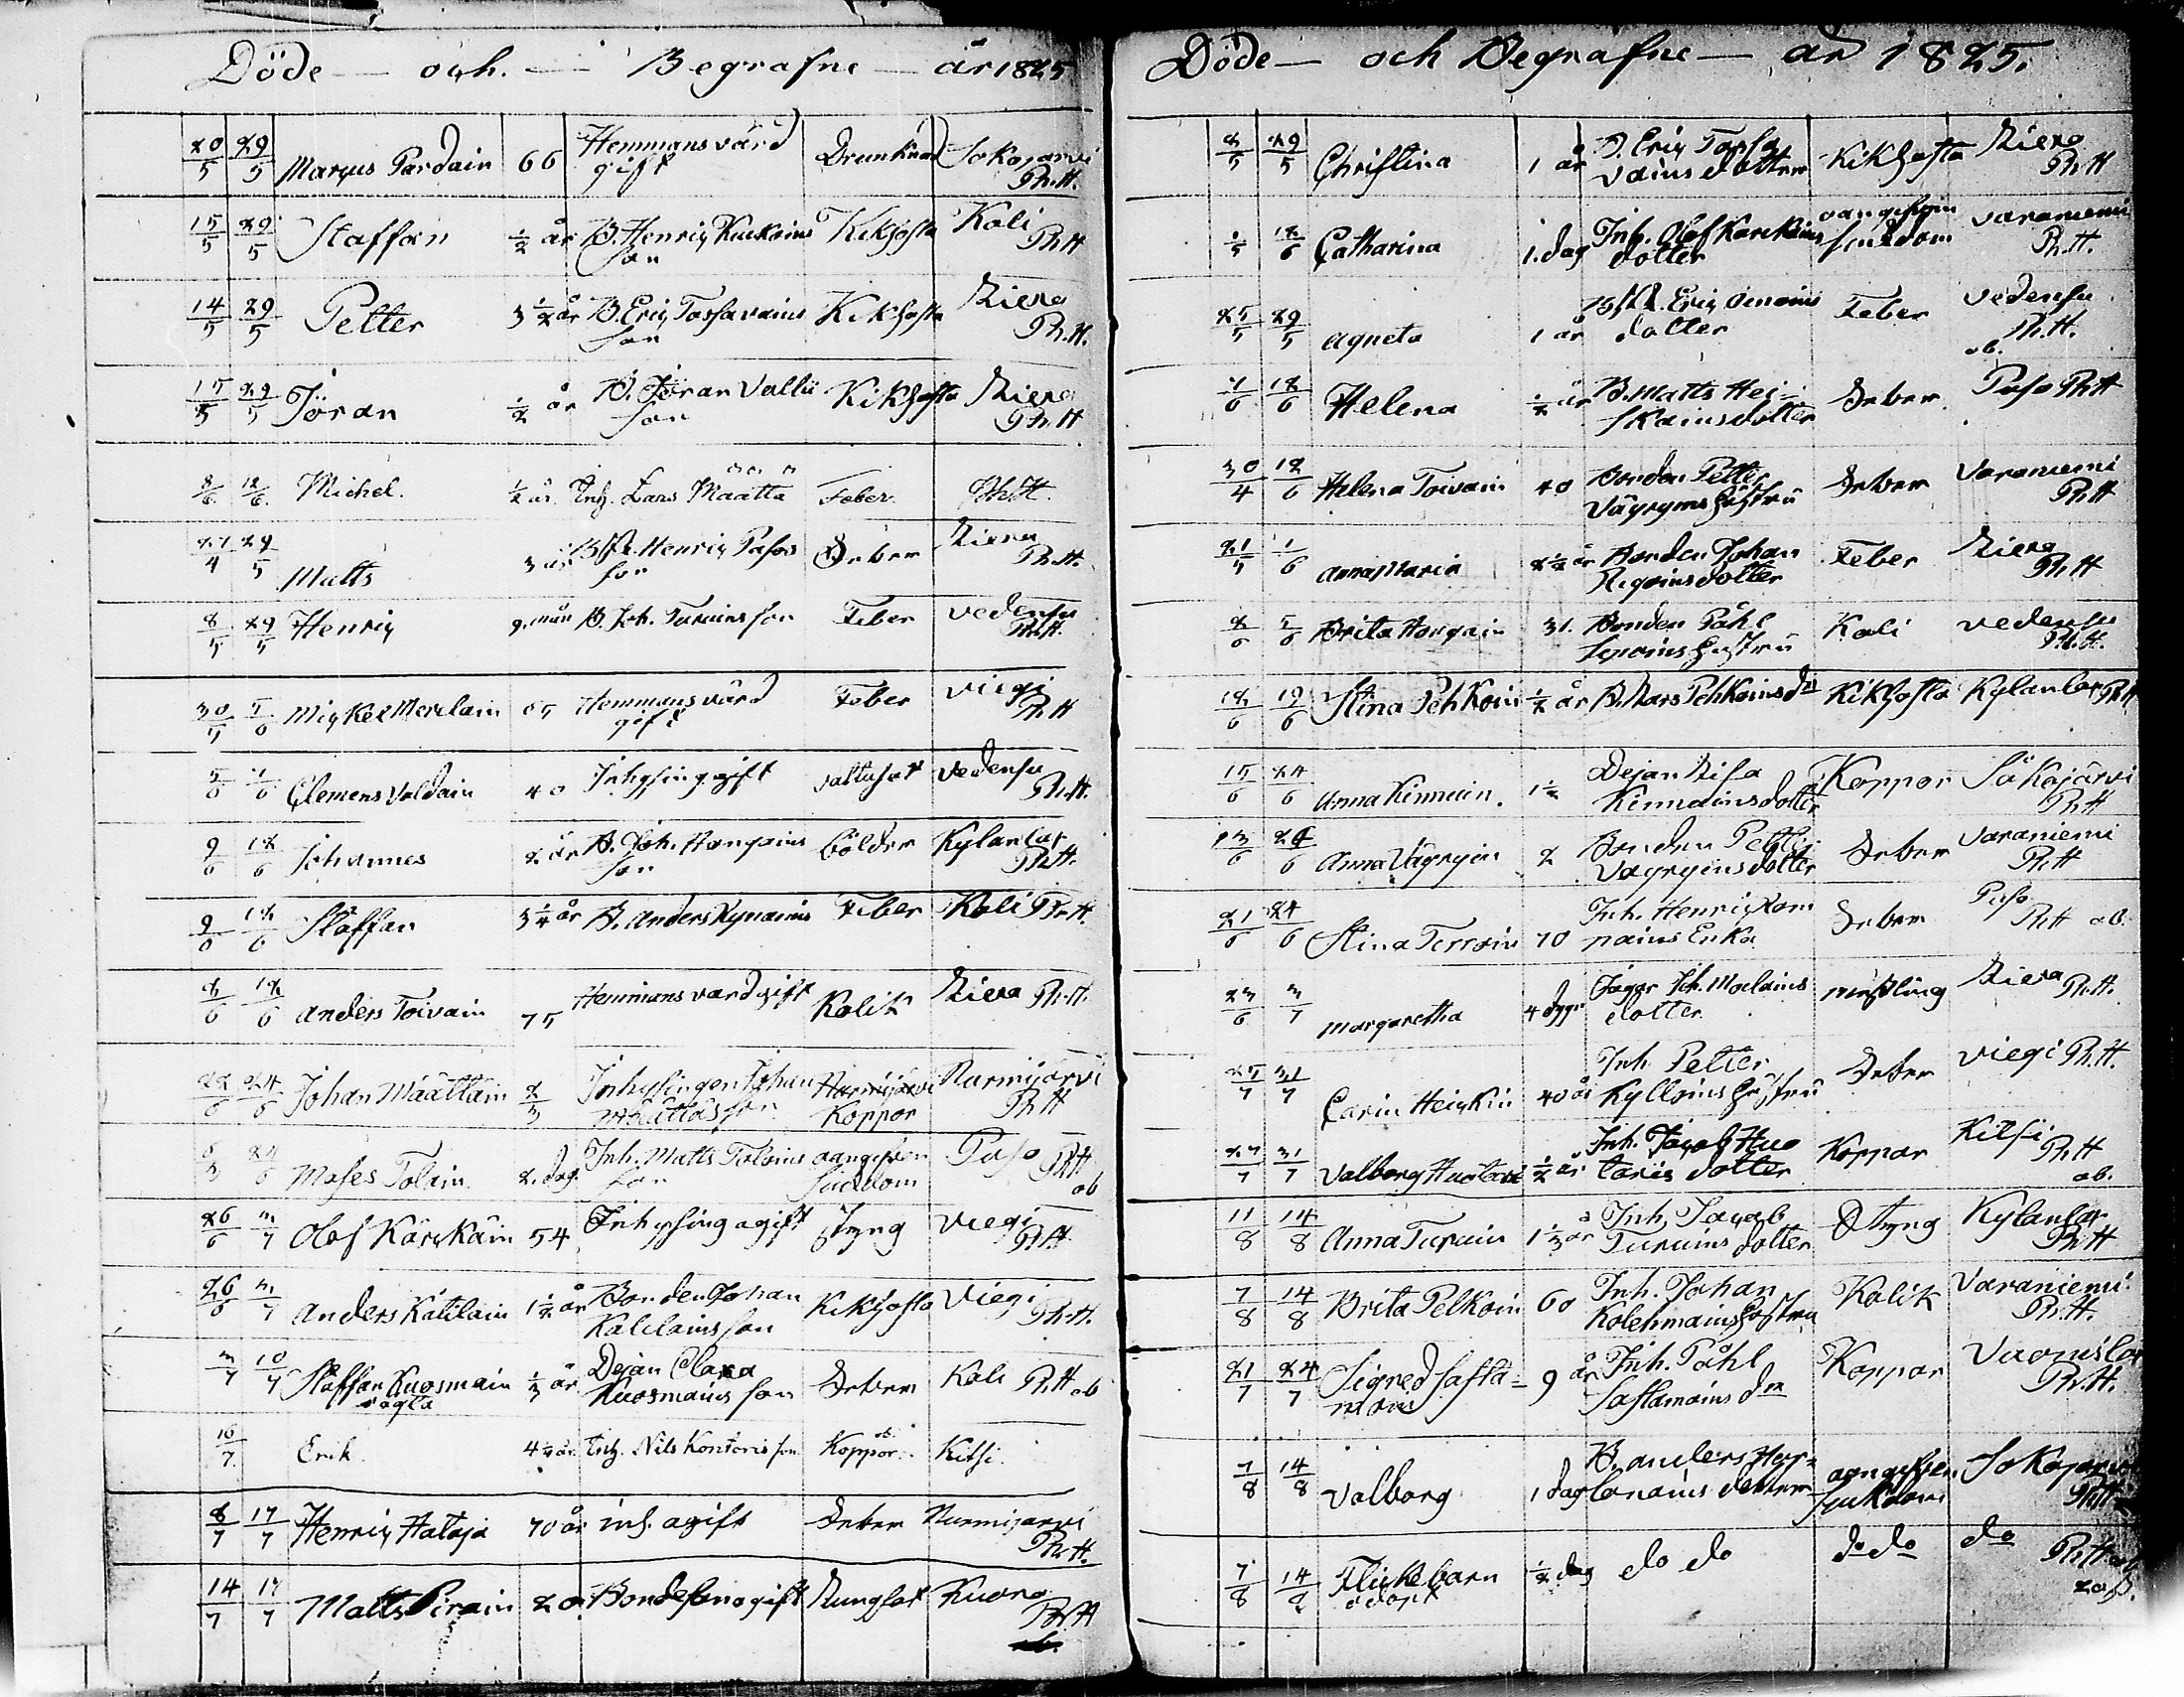 Döde — och — Begrafne — år 1825
20/5 29/5 Marcus Pardain 66 Hemmansvärd gift Drunknad Jokajarvi Ph.H.
15/5 29/5 Staffan 1/2 år B. Henric Kuckoins son Kikhosta Koli Ph.H
14/5 29/5 Petter 3 1/2 år B. Eric Tossavains son Kikhosta Ziera Ph.H.
29/5 Jöran 1/2 år B. Jöran Vallii son Kikhosta Ziera Ph.H
8/6 12/6 Michel. 1/2 år. Inh. Lars Määttä Feber Ph.H.
27/4 29/5 Matts 3 år Henric Pasos son Feber Ziera Ph.H.
8/5 29/5 Henric 9. mån B. Joh. son Feber Vedensu Ph.H.
30/5 5/6 Mickel Merilain 65 Hemmansvärd gift Feber Viegi Ph.H
5/6 Clemens Valdain 40 Inhysing gift vattusot Vedensu Ph.H.
9/6 12/6 Johannes 2 år B. Joh. son bölder Kylanlax Ph.H.
9/6 12/6 Staffan 3 1/4 år B. Anders Kynäins Feber Koli Ph.H.
8/6 12/6 Anders Toivain 75 Hemmansvärd gift Kolik Ziera Ph.H.
22/6 24/6 Johan Määttäin 2/3 Inhysingen Johan Määttäs son Koppor Nurmijärvi Ph.H
24/6 Moses Tolvain 2. dag. Inh. Matts Tolvains son oangifven sjukdom Paso Ph.H ob
26/6 3/7 Olof Kärckäin 54 Inhysing ogift styng Viegi Ph.H
26/6 3/7 Anders Kätilain 1 1/2 år Bonden Johan Kätilains son Kikhosta Viegi Ph.H.
3/7 10/7 Staffan Kuosmain oägta 1/3 år Dejan Clara Kuosmains son Feber Koli Ph.H ob
10/7 Erik 4 1/2 år. Inh. Nils Kontoris son Koppor. Kitsi.
8/7 17/7 Henric Hataja 70 år inh. ogift Feber Nurmijarvi Ph.H.
14/7 17/7 Matts Pirain 20 Bondeson ogift Lungsot Kuora Ph.H
Döde — och Begrafne — år 1825.
2/5 29/5 Christina 1 år B. Eric Tossavains dotter Kikhosta Ziera Ph.H
12/6 Catharina 1. dag Inh. Olof Karckains dotter oangifven sjukdom Varaniemi Ph.H.
25/5 29/5 Agneta 1 år Eric dotter Feber Vedensu Ph.H. ob.
18/6 Helena 1/2 år B. Matts Heiskains dotter Feber Paso Ph.H
30/4 12/6 Helena Toivain 40 Bonden Petter Väyryins hustru Feber Varaniemi Ph.H
21/5 1/6 Anna Maria 2 1/2 år Bonden Johan dotter Feber Ziera Ph.H
2/6 5/6 Brita 31. Bonden Påhl hustru Koli Vedensu Ph.H.
12/6 19/6 Stina Pehkoin 1/2 år B. Lars Pehkoins dr Kikhosta Kylanlax Ph.H
15/6 24/6 Anna Kinnuin. 1 1/2 Dejan Lisa Kinnuins dotter Koppor Jokajärvi Ph.H
13/6 24/6 Anna Väyryin 2 Bonden Petter Väyryins dotter Feber Varaniemi Ph.H
21/6 24/6 Stina Terroin 70 Inh. Henric Rompains Enka Feber Paso Ph.H ob.
23/6 3/7 Margaretha 4 dygn Jäger Joh. dotter mässling Ziera Ph.H.
25/7 31/7 Carin Heickin 40 år Inh. Petter Kylloins hustru Feber Viegi Ph.H.
27/7 31/7 Valborg Huotari 1/2 år Inh. Jacob Huotaris dotter Koppor Kitsi Ph.H ob.
11/8 14/8 Anna Turuin 1 1/3 år Inh. Jacob Turuins dotter Styng Kylanlax Ph.H
7/8 14/8 Brita Pelkoin 60 Inh. Johan Kolehmains hustru Kolik Varaniemi Ph.H.
21/7 24/7 Signed Sastamoin 9 år Inh. Påhl Sastamoins dr Koppor Vaornislax Ph.H.
7/8 14/8 Valborg 1 dag B. Anders Hyplonains dotter oangifven sjukdom Jokajarvi Ph.H
7/8 14/8 Flickebarn odöpt 1/2 dag do do do do do Ph.H